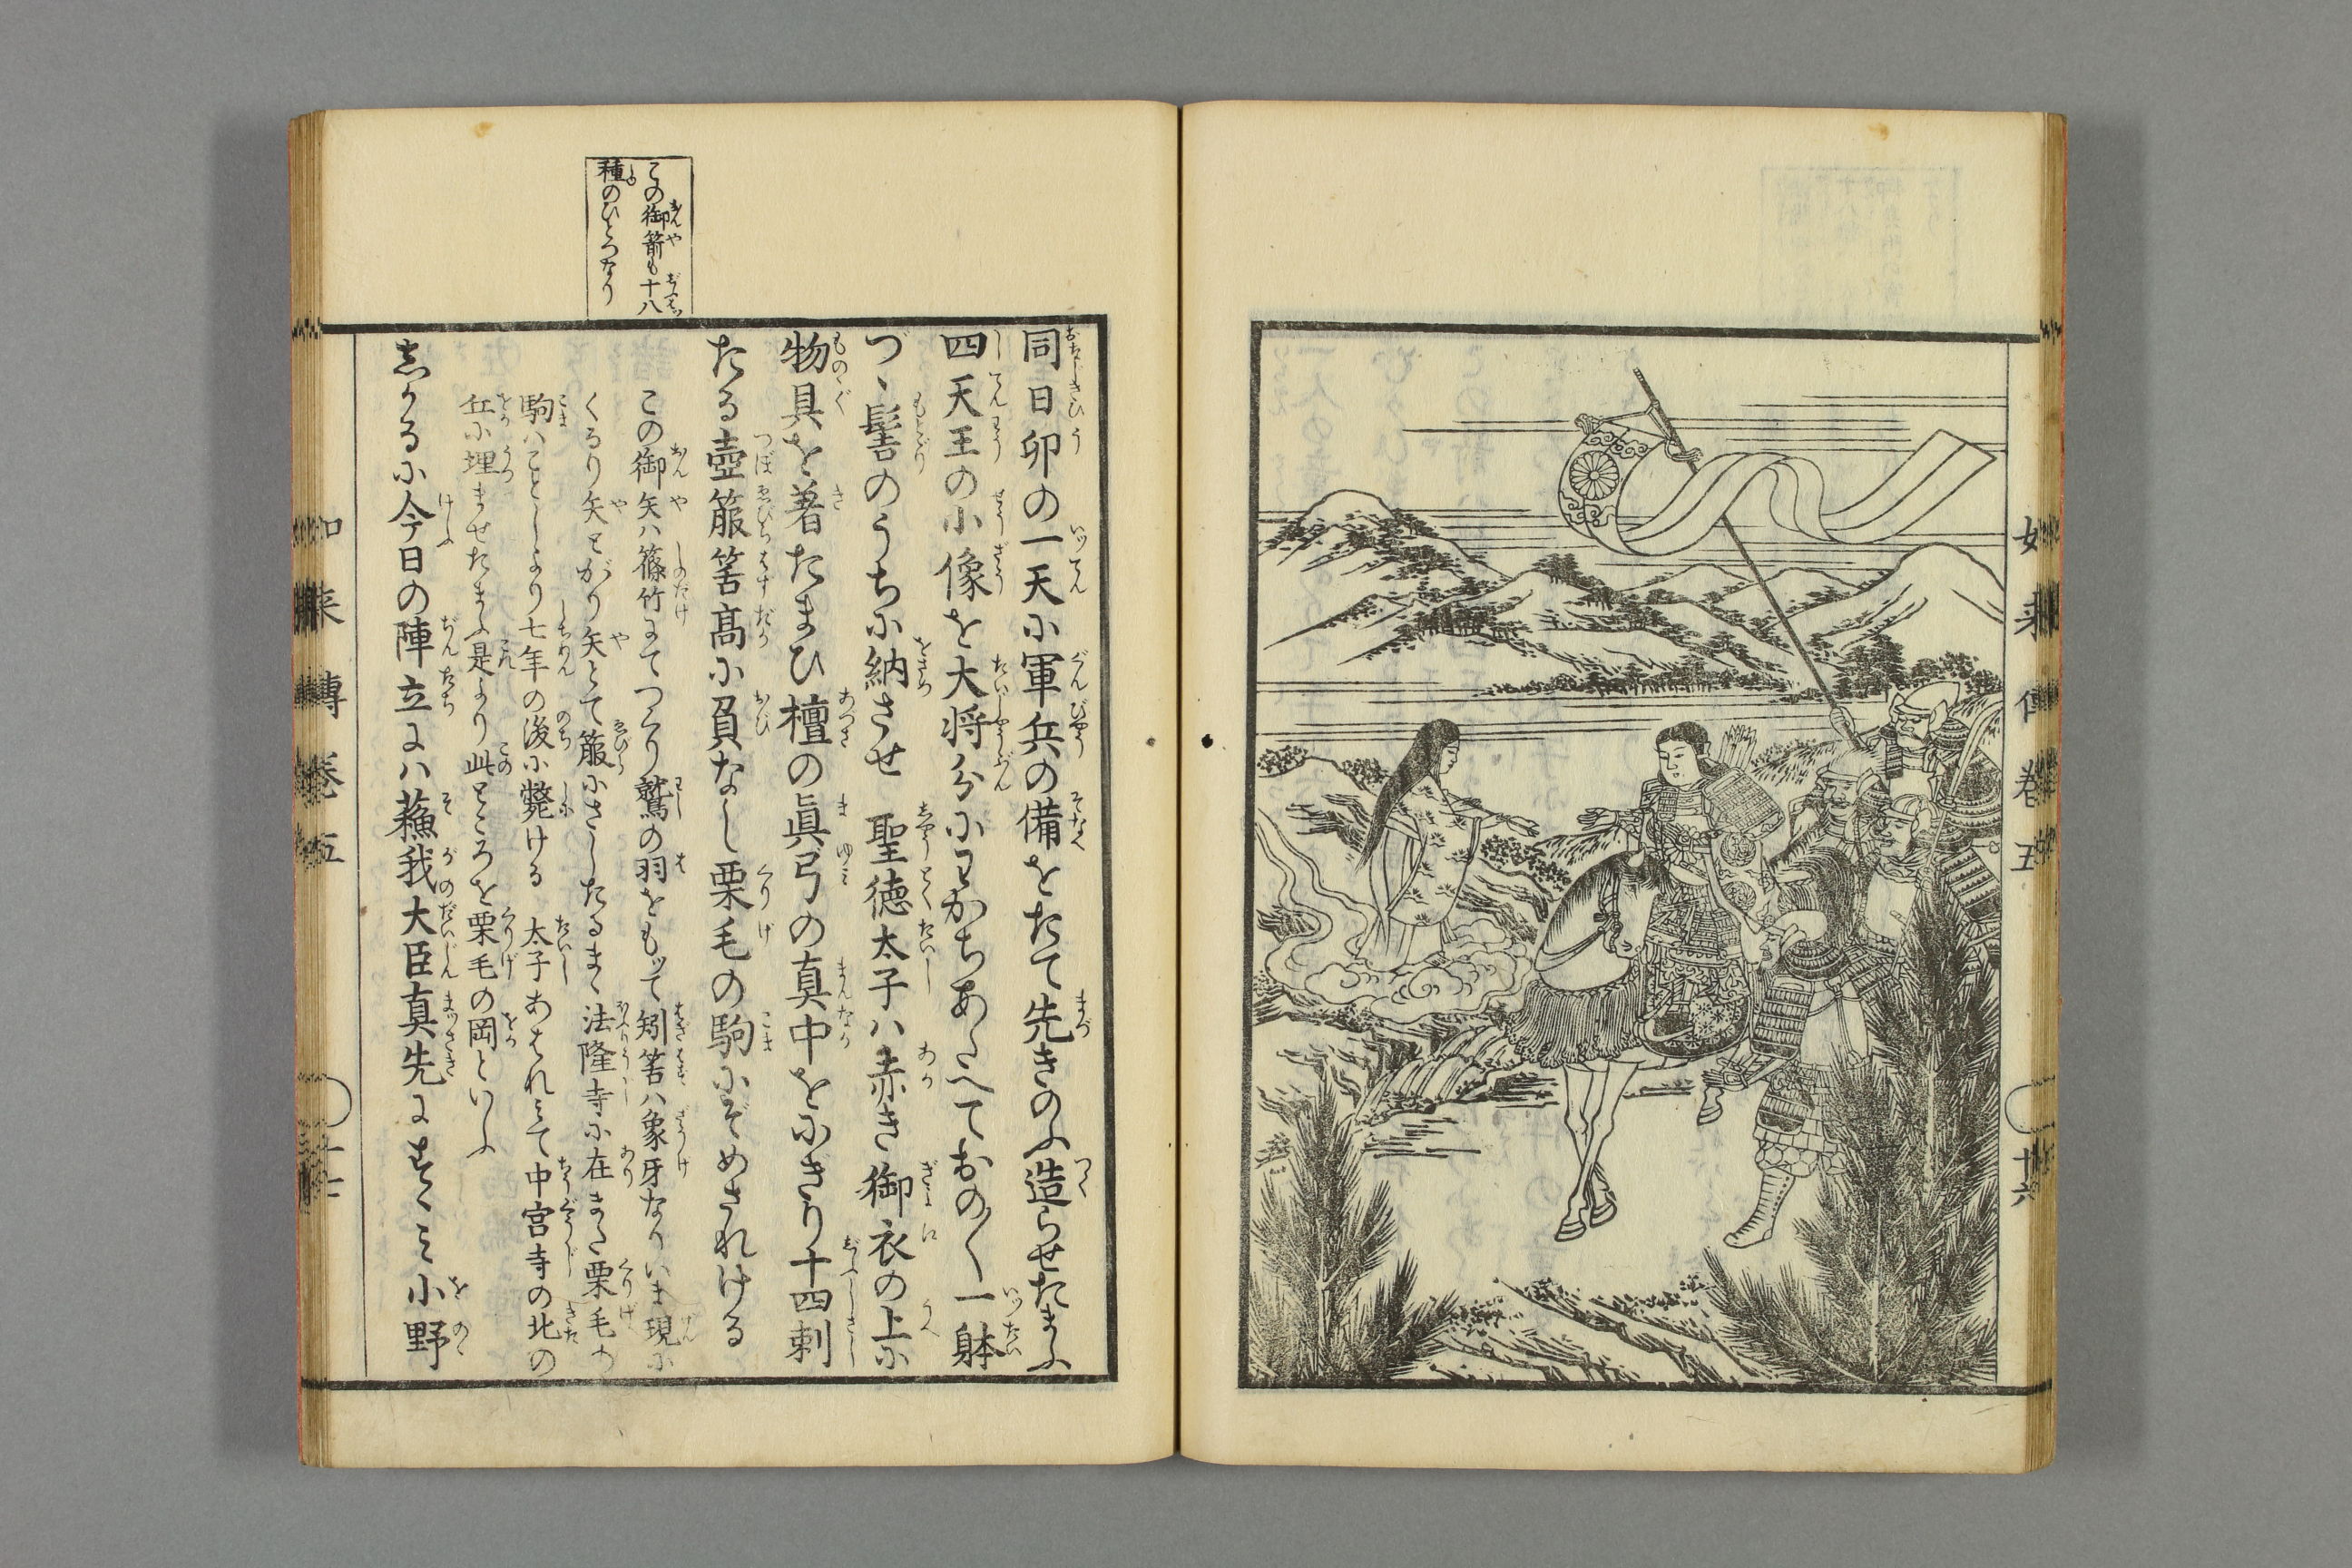 如来傳卷五
十六
この御箭も十八
種のひとつなり
同日卯の一天に軍兵の備をたて先きのふ造らせたまふ
四天王の小像を大将分にわかちあたへておの〳〵一躰
づゝ髻のうちに納させ　聖徳太子ハ赤き御衣の上に
物具を著たまひ檀の眞弓の真中をにぎり十四剌
たる壺箙筈髙に負なし栗毛の駒にぞめされける
この御矢ハ篠竹にてつくり鷲の羽をもッて矧筈ハ象牙なりいま現に
くるり矢とがり矢とて箙にさしたるまゝ法隆寺に在また栗毛の
駒ハことしより七年の後に斃ける　太子あはれみて中宮寺の北の
丘に埋ませたまふ是より此ところを栗毛の岡といふ
志かるに今日の陣立にハ蘓我大臣真先にすゝみ小野
如来傳卷五
十七